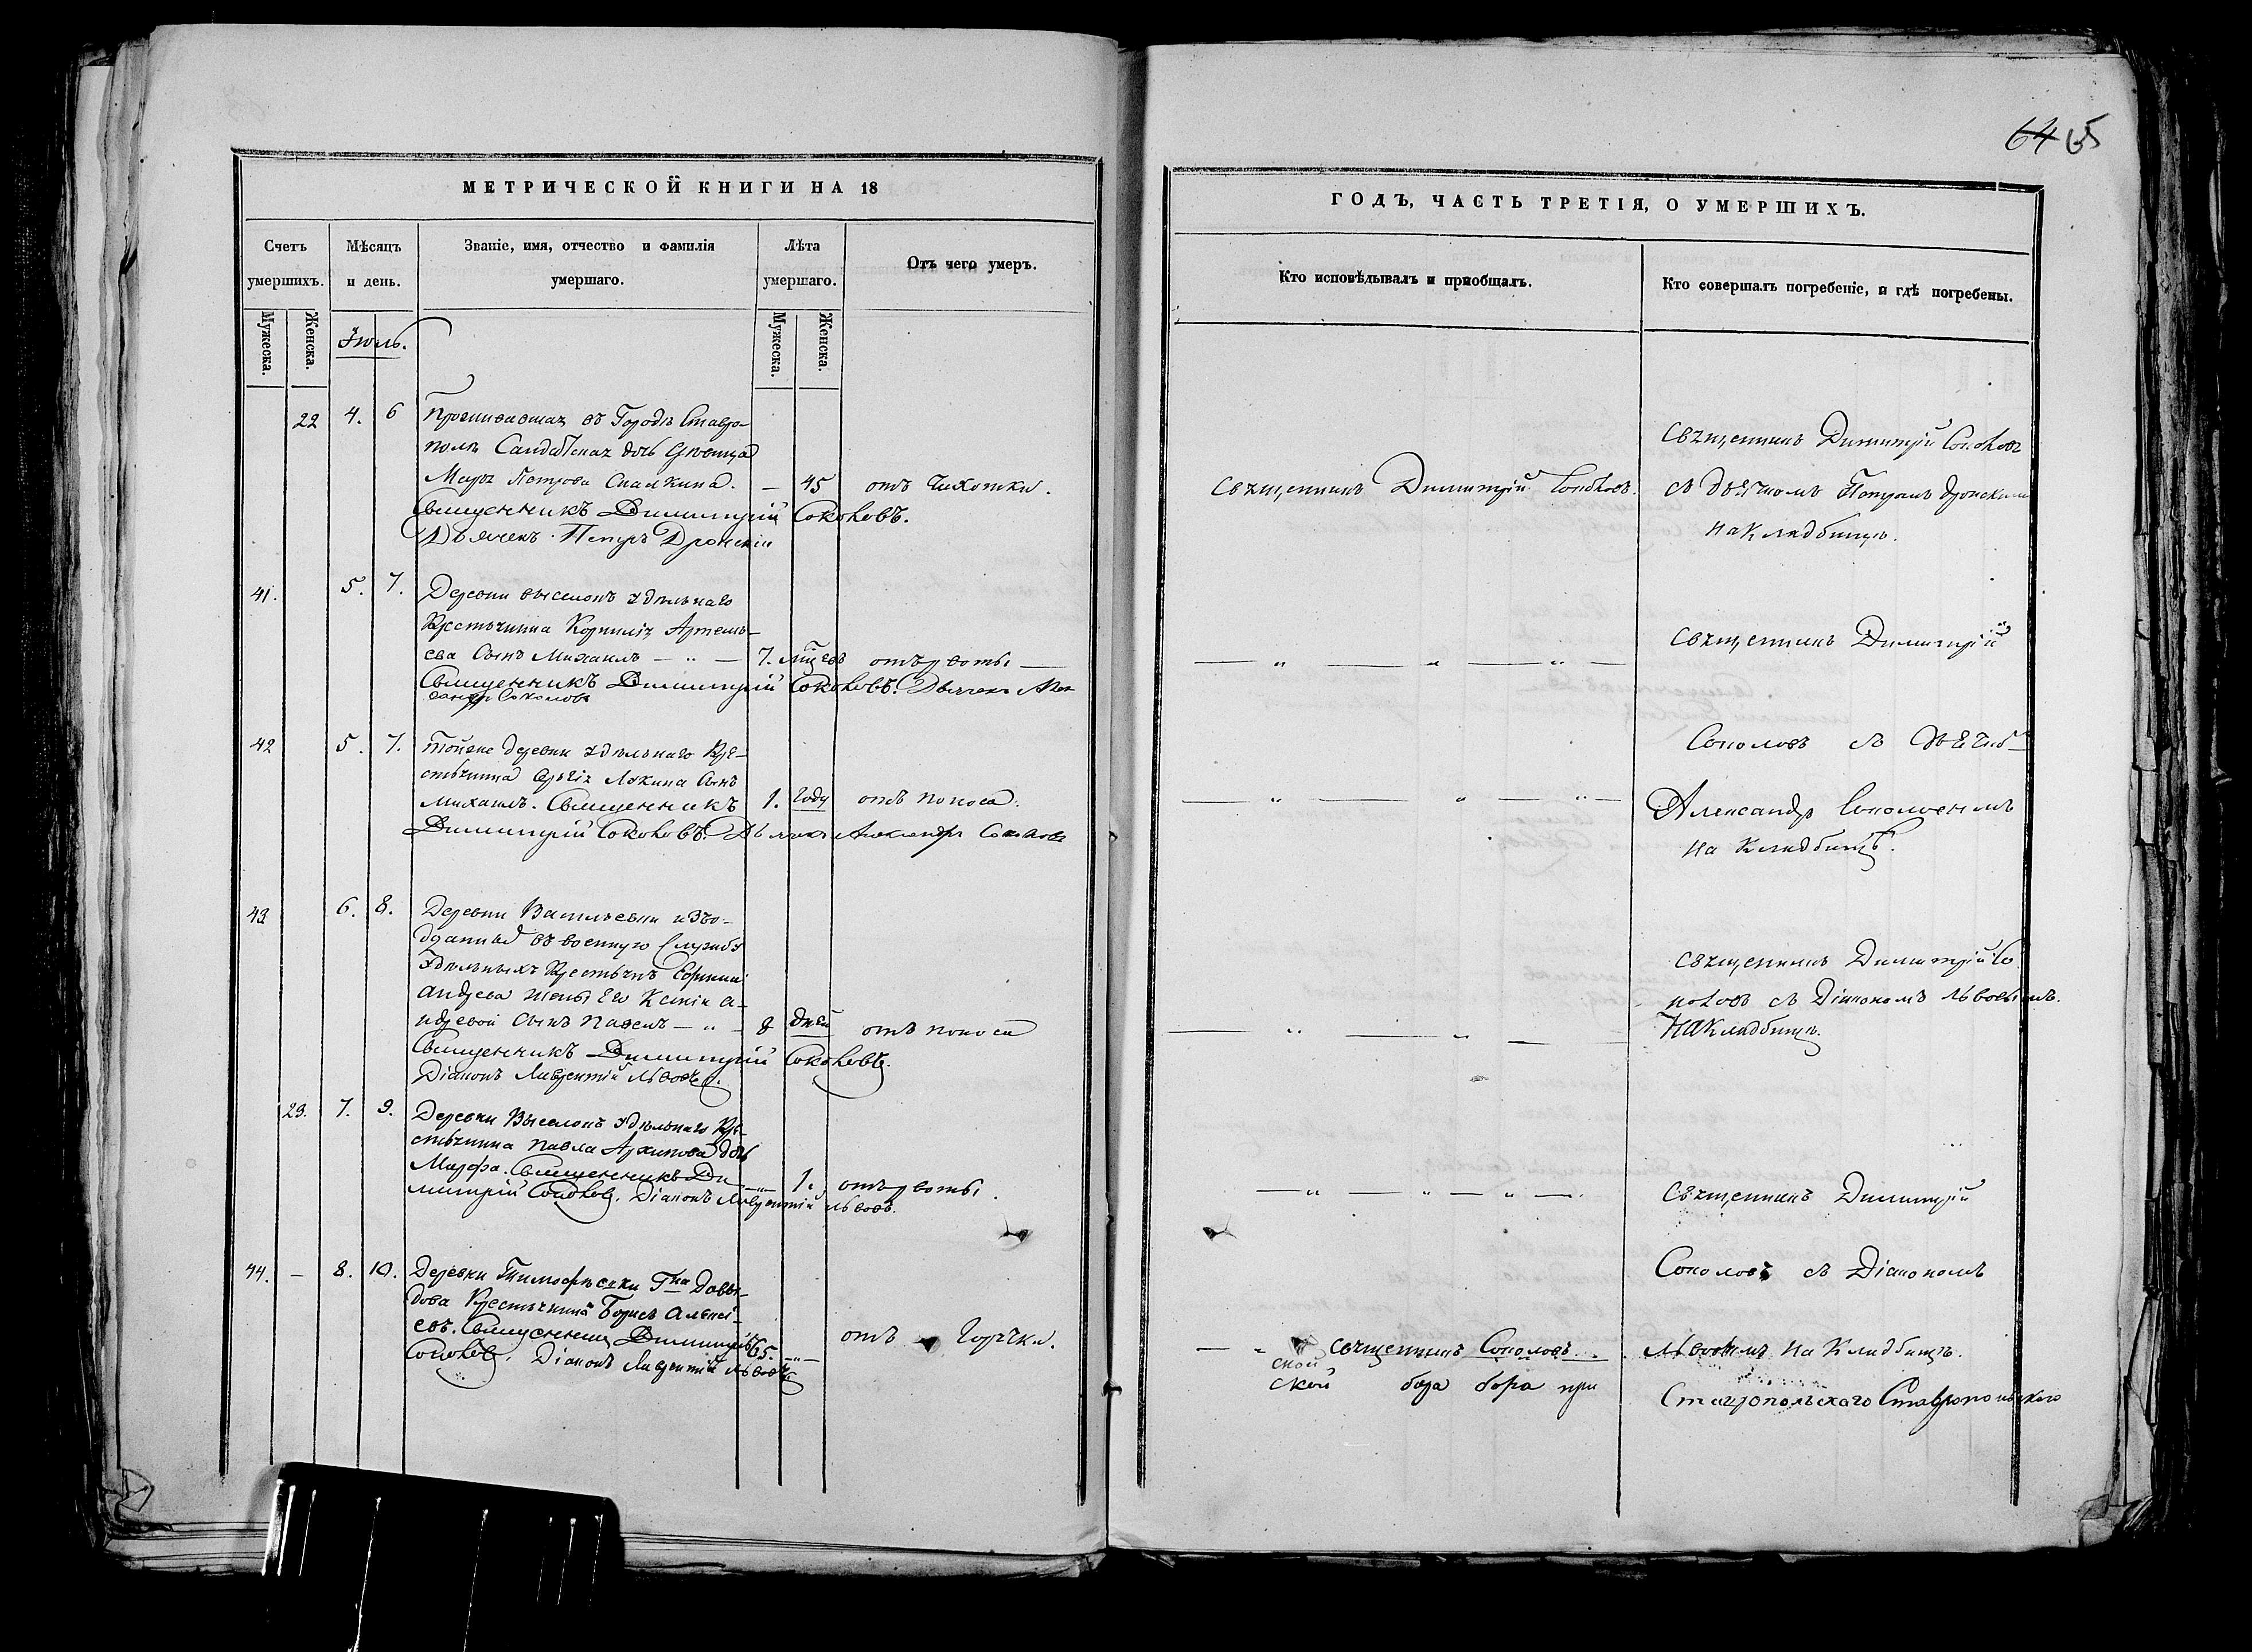 МЕТРИЧЕСКОЙ КНИГИ НА 18
Счетъ умершихъ.
Мѣсяцъ и день.
Званіе, имя, отчество и фамилія умершаго.
Лѣта умершаго.
Отъ чего умеръ.
Мужеска.
Женска.
Іюль.
Мужеска.
Женска.
22 4. 6 Проживавшая въ Городѣ Ставро-
полѣ дочь девица
Марѳа Петрова — 45 отъ Чихотки.
Священникъ Димитрій Соколовъ.
Дьячекъ Петръ Дронскій
41. 5. 7. Деревни выселокъ удѣльнаго
Крестьянина Корнилія Артемь-
ева Сынъ Михаилъ — „ — 7. мцсевъ отъ рвоты —
Священникъ Димитрій Соколовъ. Дьячекъ Алек
сандръ Соколовъ
42 5. 7. тойже деревни удѣльнаго Кре-
стьянина Сергія Лукина Сынъ
Михаилъ. Священникъ 1. году отъ поноса.
Димитрій Соколовъ. Дьячекъ Александръ Соколовъ
43 6. 8. Деревни Васильевки изъ о-
дданныхъ въ военную Службу
Удѣльныхъ Крестьянъ
Андреева жены Его Ксеніи А-
ндреевой Сынъ Павелъ — „ — 8 дней отъ поноса
Священникъ Димитрій Соколовъ.
Діаконъ Лаврентій Львовъ.
23. 7. 9. Деревни Выселокъ Удѣльнаго Кре-
стьянина Павла Архипова дочь
Марфа. Священникъ Ди- — „ — 1. отъ рвоты.
митрій Соколовъ. Діаконъ Лаврентій Львовъ.
44. — 8. 10. Деревни Тимофѣевки Гна Давы-
дова Крестьянинъ Борисъ Алексі-
евъ. Священникъ Димитрій 65. — „ — отъ Горячки.
Соколовъ. Діаконъ Лаврентій Львовъ
64 65
ГОДЪ, ЧАСТЬ ТРЕТІЯ, О УМЕРШИХЪ.
Кто исповѣдывалъ и приобщалъ.
Кто совершалъ погребеніе, и гдѣ погребены.
Священникъ Димитрій Соколовъ.
Священникъ Димитрій Соколовъ
съ дьячкомъ Петромъ Дронскимъ
на кладбищѣ.
— „ — „ — „ —
Священникъ Димитрій
Соколовъ съ Дьячко-
— „ — „ — „ —
Александр Соколовымъ
на Кладбищѣ.
Священникъ Димитрій Со
коловъ съ Діакономъ Львовымъ.
— „ — „ —
На кладбищѣ.
— „ — „ — „ —
Священникъ Димитрій
Соколовъ съ Діакономъ
— „ священникъ Соколовъ.
Львовымъ на Кладбищѣ.
ской
ской бора бора при
Ставропольскаго Ставропольскаго